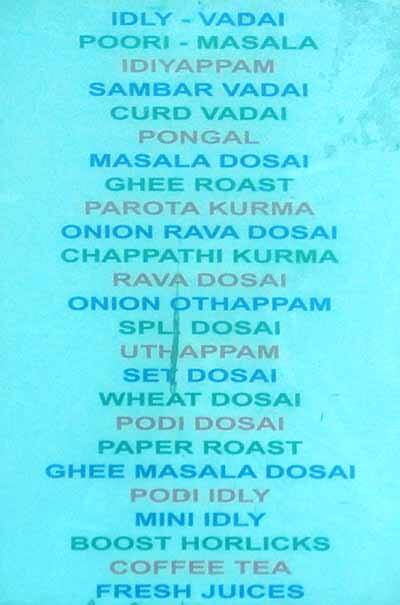 IDLY - VADAI
POORI - MASALA
IDIYAPPAM
SAMBAR VADAI
CURD VADAI
PONGAL
MASALA DOSAI
GHEE ROAST
PAROTA KURMA
ONION RAVA DOSAI
CHAPPATHI KURMA
RAVA DOSAI
ONION OTHAPPAM
SPL. DOSAI
UTHAPPAM
SET DOSAI
WHEAT DOSAI
PODI DOSAI
PAPER ROAST
GHEE MASALA DOSAI
PODI IDLY
MINI IDLY
BOOST HORLICKS
COFFEE TEA
FRESH JUICES